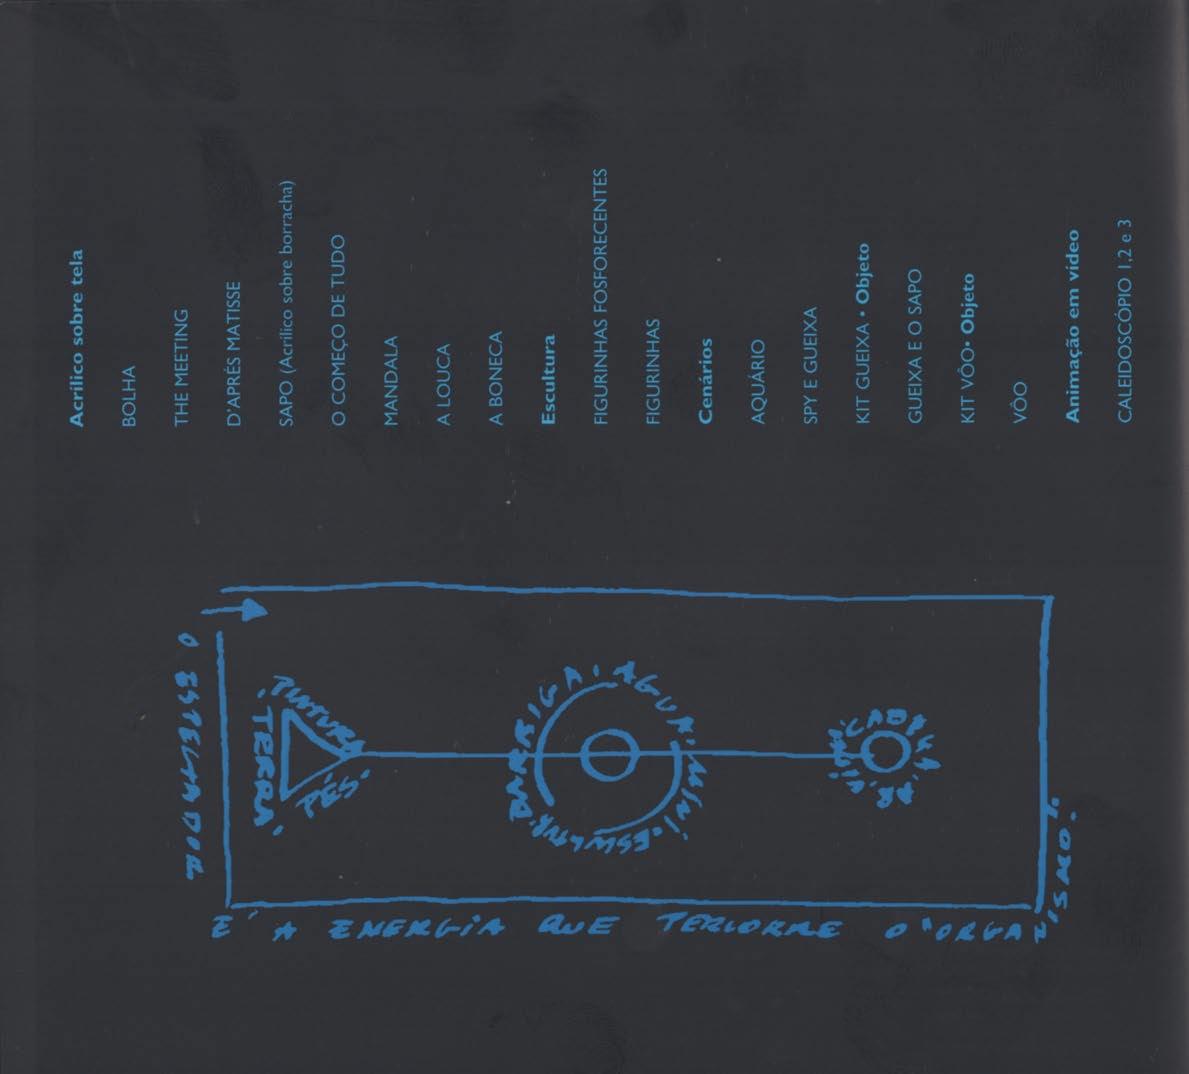 Acrílico sobre tela
BOLHA
THE MEETING
D'APRÉS MATISSE
SAPO (Acrílico sobre borracha)
O COMEÇO DE TUDO
MANDALA
A LOUCA
A BONECA
Escultura
FIGURINHAS FOSFORECENTES
FIGURINHAS
Cenários
AQUÁRIO
SPY E GUEIXA
KIT GUEIXA • Objeto
GUEIXA E O SAPO
KIT VÔO• Objeto
VÔO
Animação em vídeo
CALEIDOSCÓPIO 1,2 e 3
O ESPECTADOR
É A ENERGIA QUE PERCORRE O "ORGANISMO".
PINTURA
TERRA
PÉS
BARRIGA · AGUA · MINI · ESCULTURA
CABEÇA AR